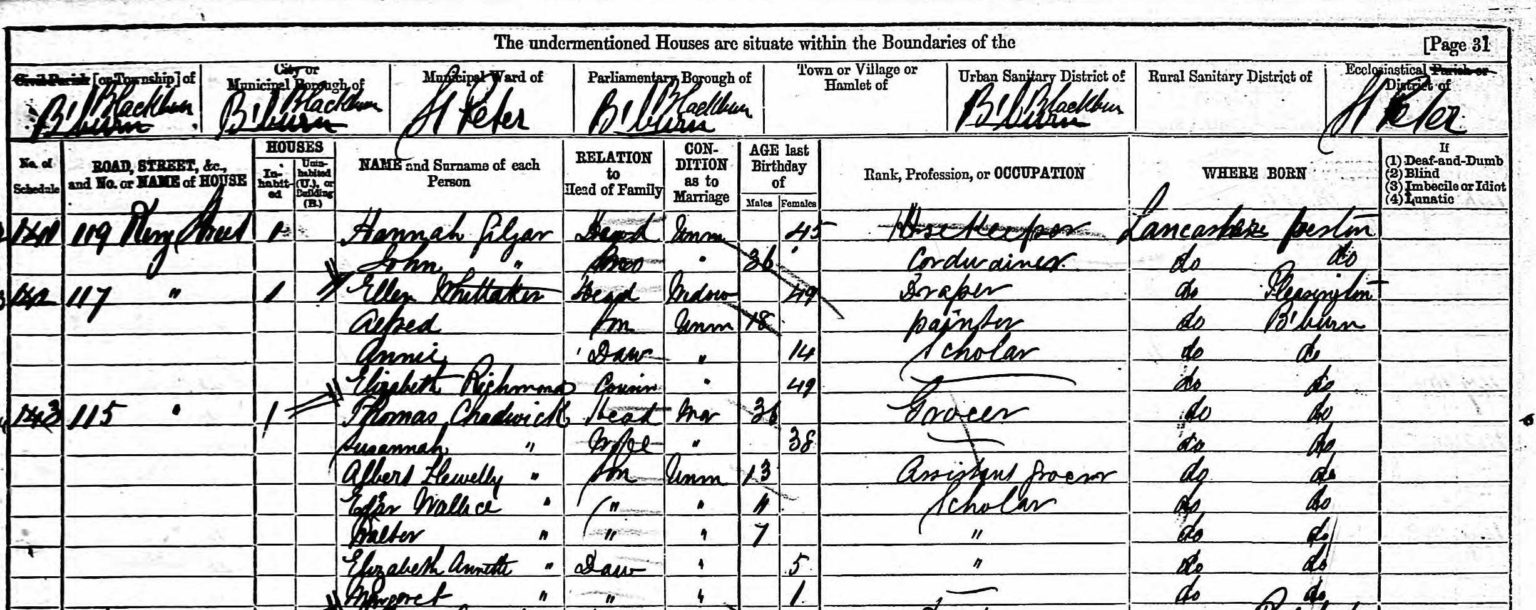 The undermentioned Houses are situate within the Boundaries of the [Page 31
Civil Parish [or Township] of City or Municipal Borough of Municipal Ward of Parliamentary Borough of Town or Village or Hamlet of Urban Sanitary District of Rural Sanitary District of Ecclesiastical Parish or District of
B'burn Blackburn B'burn Blackburn St Peter B'burn Blackburn B'burn Blackburn St Peter
No. of Schedule ROAD, STREET, &c., and No. or NAME of HOUSE HOUSES In-habit-ed Unin-habited (U.), or Building (B.) NAME and Surname of each Person RELATION to Head of Family CON-DITION as to Marriage AGE last Birthday of Males Females Rank, Profession, or OCCUPATION WHERE BORN If (1) Deaf-and-Dumb (2) Blind (3) Imbecile or Idiot (4) Lunatic
141 119 King Street 1 Hannah Head Unm 45 Housekeeper Lancashire Preston
John " Bro " 36 Cordwainer do do
142 117 " 1 Ellen Whittaker Head Widow 49 Draper do Pleasington
Alfred Son Unm 18 painter do B'burn
Annie Daur " 14 Scholar do do
Elizabeth Richmond Cousin " 49 do do
143 115 " 1 Thomas Chadwick Head Mar 36 Grocer do do
Susannah " Wife " 38 do do
Albert Llewelly " Son Unm 13 Assistant Grocer do do
Edgar Wallace " " " 11 Scholar do do
Walter " " " 7 " do do
Elizabeth Annette " Daur " 5 " do do
Margaret " " " 1 do do